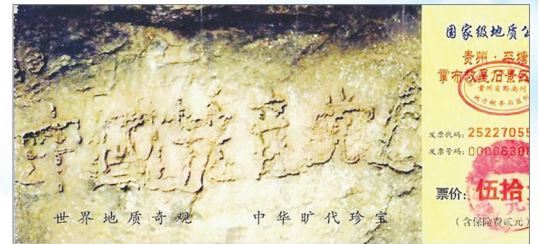 中國共产党
世界地质奇观 中华旷代珍宝
国家级地质公
贵州·平塘
掌布藏字石景区
贵州省黔南州
发票代码: 25227055
发票号码: 0000630
票价: 伍拾
(含保险费贰元)